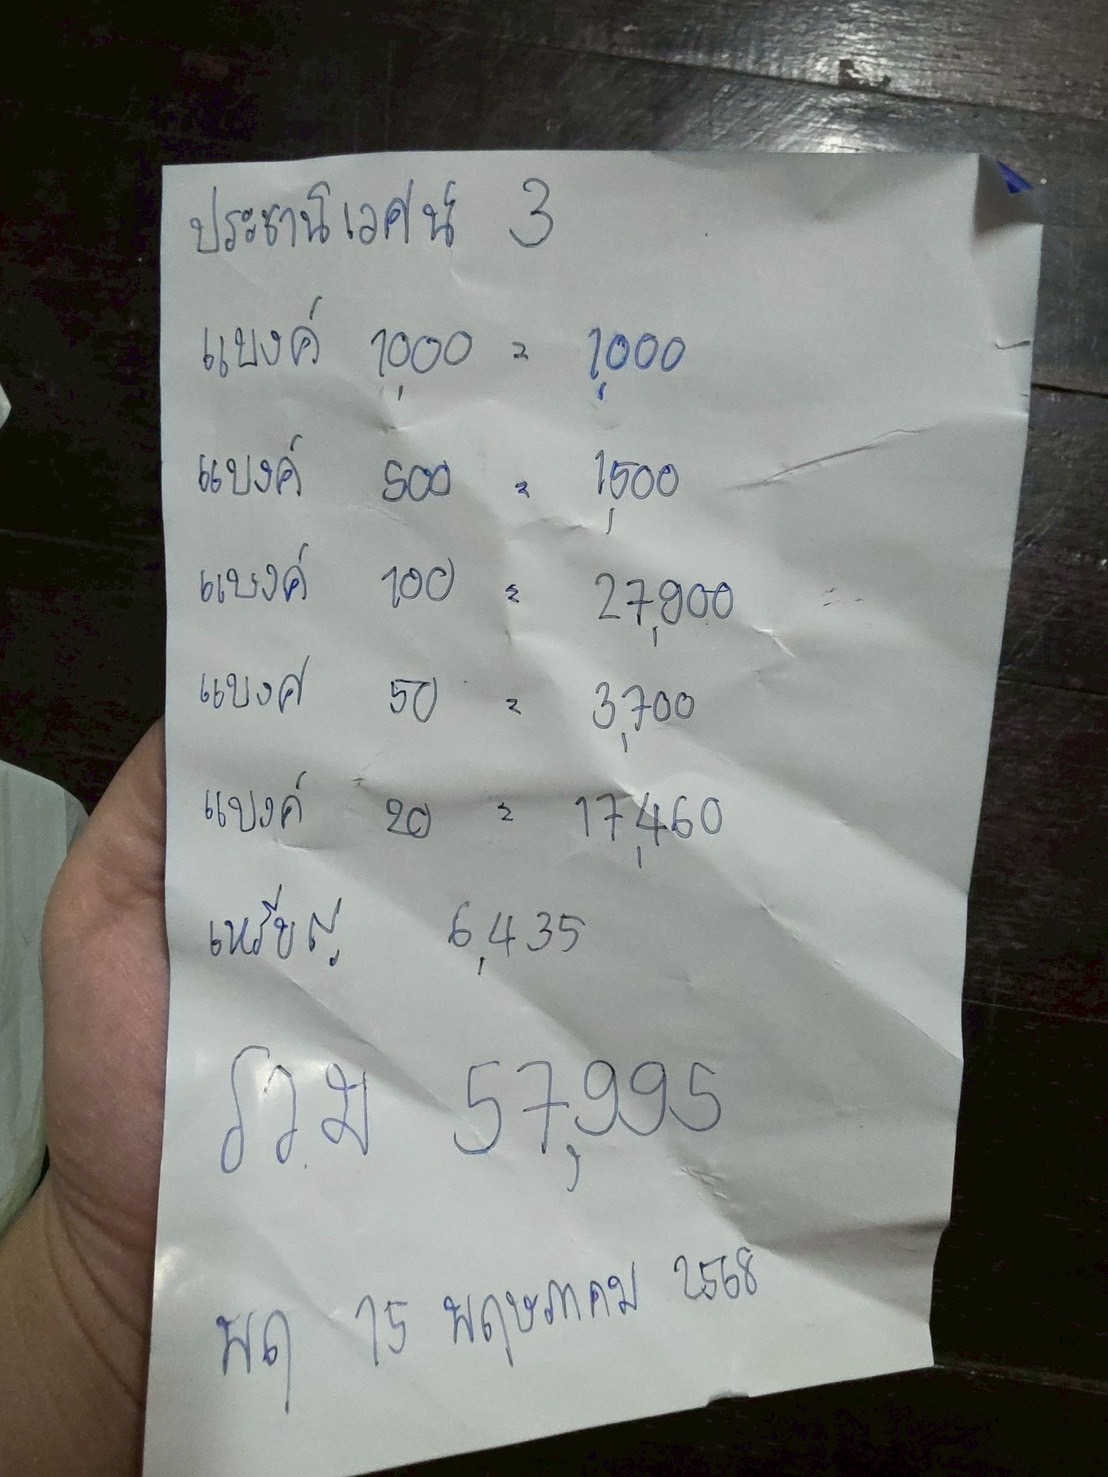 ประชานิเวศน์ 3
แบงค์ 1,000 = 1,000
แบงค์ 500 = 1,500
แบงค์ 100 = 27,900
แบงค์ 50 = 3,700
แบงค์ 20 = 17,460
เหรียญ 6,435
รวม 57,995
พฤ 15 พฤษภาคม 2568